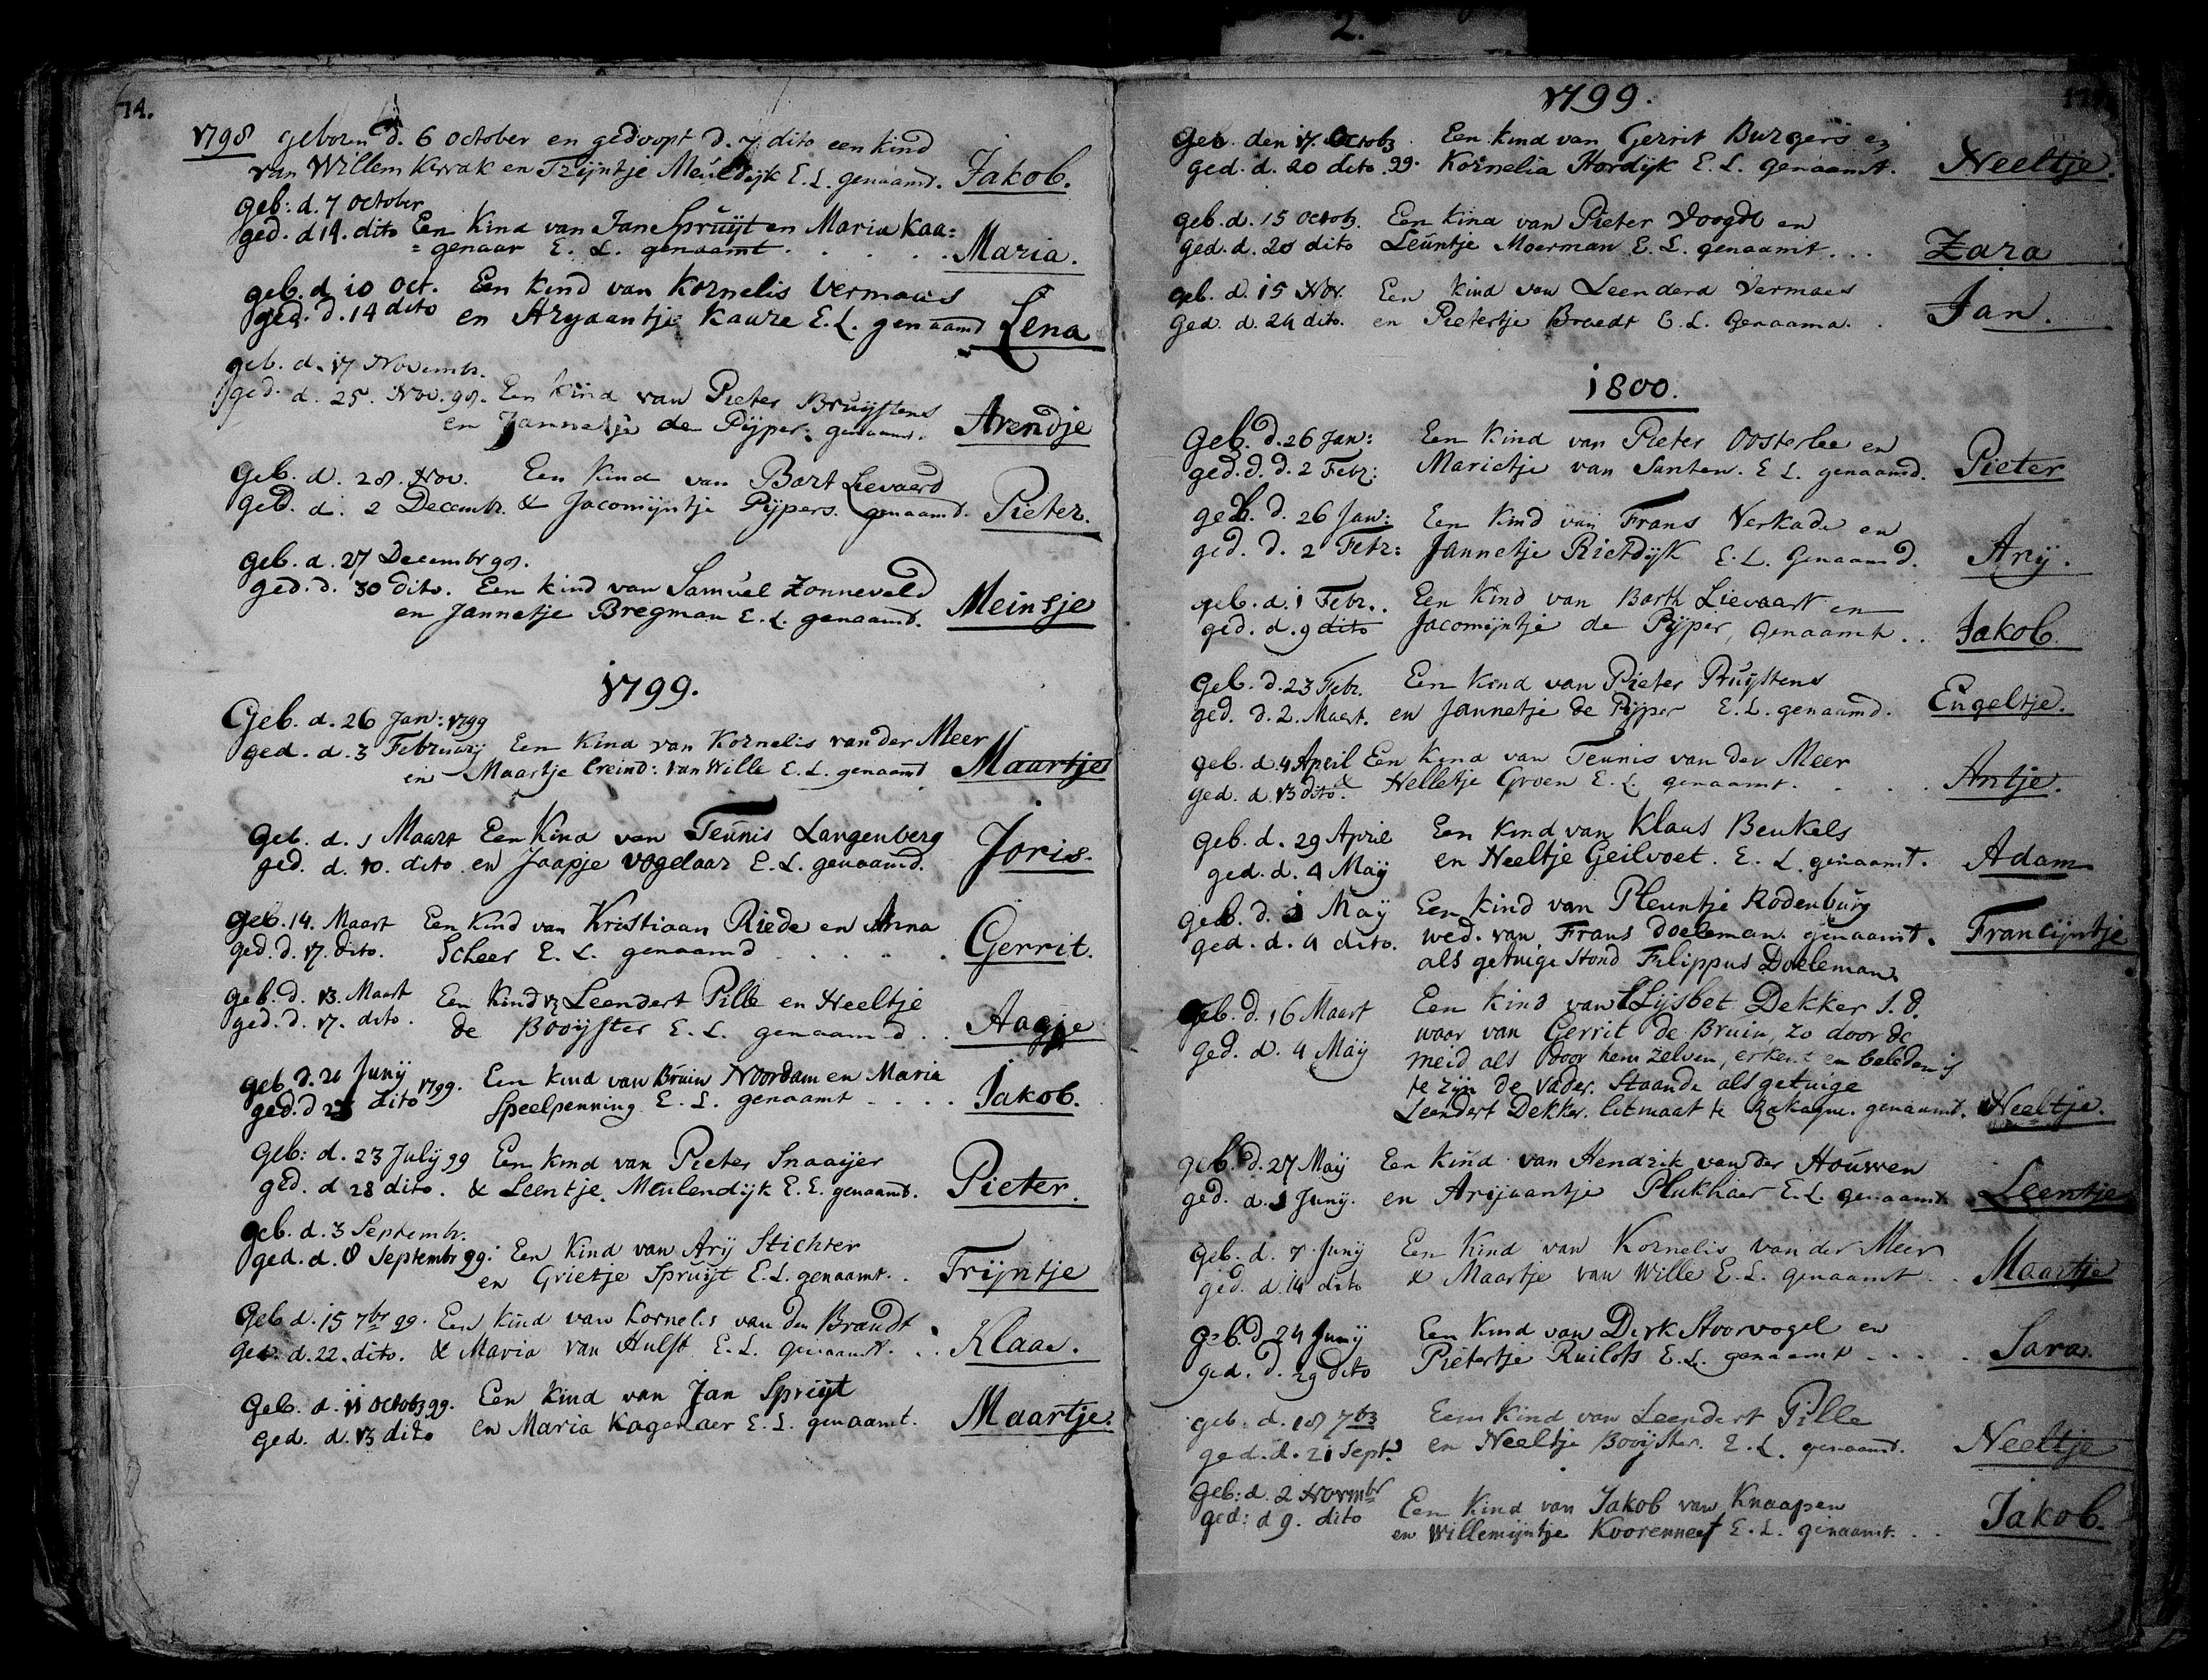 2.
14.
1798 geboren d. 6 october en gedoopt d. 7 dito een kind
van Willem Kwak en Trijntje Meuldijk E. L. genaamd. Jakob.
geb: d. 7 october
ged. d 14. dito Een Kind van Jan Spruijt en Maria Kaa:
= genaar E. L. genaamt . . . . . Maria.
geb. d 10 oct. Een kind van Kornelis Vermaas
ged. d. 14 dito en Aryaantje Kaure E. L. genaamd Lena
geb. d. 17 Novembr.
ged. d. 25. Nov. 98. Een Kind van Pieter Bruijstens
en Jannetje de Pijper. genaamd. Arendje
geb. d. 28. Nov. Een Kind van Bart Lievaerd
ged. d. 2 Decembr. & Jacomijntje Pijpers. genaamd. Pieter.
geb. d. 27 Decembr 98.
ged. d. 30 dito. Een kind van Samuel Zonneveld
en Jannetje Bregman E. L. genaamd. Meinsje
1799.
Geb. d. 26 Jan: 1799
ged. d. 3 February Een Kind van Kornelis van der Meer
en Maartje Creind: van Wille E. L. genaamd Maartje
Geb. d. 1 Maart Een Kind van Teunis Langenberg
ged. d. 10. dito en Jaapje Vogelaar E. L. genaamd. Joris.
Geb. 14. Maart Een Kind van Kristiaan Riede en Anna
ged. d. 17. dito. Scheer E. L. genaamd . . . . . Gerrit.
geb. d. 13. Maart Een Kind vz Leendert Pille en Neeltje
ged. d. 17. dito. de Booijster E. L. genaamd . . Aagje
geb. d. 21 Junij 1799. Een kind van Bruin Noordam en Maria
ged. d 23 dito Speelpenning E. L. genaamt . . . . Jakob.
Geb: d. 23 July 99 Een kind van Pieter Snaaijer
ged. d 28 dito. & Leentje Meulendijk E. L. genaamd. Pieter.
geb. d. 3 Septembr.
ged. d. 8 Septembr 99. Een Kind van Arij Stichter
en Grietje Spruijt E. L. genaamt. . Trijntje
Geb d. 15 7br 99. Een Kind van Kornelis van den Brandt
ged. d. 22. dito. & Maria van Hulst E. L. genaamt. . . Klaas.
Geb. d. 11 octob 99. Een Kind van Jan Spruijt
Ged. d. 13 dito en Maria Kagenaer E. L. genaamt. Maartje.
1799.
Geb. den 17. Octob. Een kind van Gerrit Burgers en
ged. d. 20 dito. 99. Kornelia Hordijk E. L. genaamt. Neeltje.
geb. d. 15 Octob. Een Kind van Pieter Voogdt en
ged. d. 20 dito Leuntje Moerman E. L. genaamt . . . Zara
geb. d. 15 Nov. Een Kind van Leenderd Vermaes
ged. d. 24 dito. en Pietertje Braedt E. L. genaamd. . Jan.
1800.
Geb. d. 26 Jan: Een Kind van Pieter Oosterlee en
ged. d. d. 2 Febr: Marietje van Santen. E L. genaamd. Pieter
geb. d. 26 Jan: Een Kind van Frans Verkade en
ged. d. 2 Febr: Jannetje Rietdijk E. L. Genaamd. Arij.
geb. d. 1 Febr. Een Kind van Barth Lievaart en
ged. d. 9 dito Jacomijntje de Pijper, genaamt . . Jakob.
geb. d. 23 Febr. Een Kind van Pieter Bruijstens
ged. d. 2. Maart. en Jannetje de Pijper E. L. genaamd. Engeltje.
geb. d. 4 April Een Kind van Teunis van der Meer
ged. d. 13 dito. & Nelletje Groen E. L. genaamt. . . . . Antje.
geb. d. 29 April Een kind van Klaas Beukels
ged. d. 4 Maÿ en Neeltje Geilvoet. E. L. genaamt. Adam
geb. d. 1 Maÿ Een kind van Pleuntje Rodenburg
ged. d. 4 dito. wed. van Frans Doeleman. genaamt. Francijntje
als getuige stond Filippus Doeleman
Geb. d. 16 Maart Een Kind van Lijsbet Dekker J. d.
waar van Gerrit de Bruin, zo door de
ged. d. 4 Maÿ meid als door hem zelven, erkent en beleden is
te zijn de Vader. Staande als getuige
Leendert Dekker. litmaat te genaamt. Neeltje.
geb. d. 27 Maÿ Een Kind van Hendrik van der Houwen
ged. d. 1 Junij. en Arijaantje Plukhaer E. L. genaamt Leentje
geb. d. 7. Junij Een Kind van Kornelis van der Meer
ged. d. 14 dito & Maartje van Wille E. L. genaamt . . Maartje
geb. d 24 Junij Een Kind van Dirk Hoorvogel en
ged. d. 29 dito Pietertje Ruilofs E. L. genaamt . . . . Sara.
geb. d. 18 7br Een Kind van Leendert Pille
ged. d. 21 Sept. en Neeltje Booijster. E. L. genaamt. Neeltje
geb: d. 2 Novembr Een Kind van Jakob van Knaapen
ged: d 9. dito en Willemijntje Koorenneef E. L. genaamt. . . Jakob.